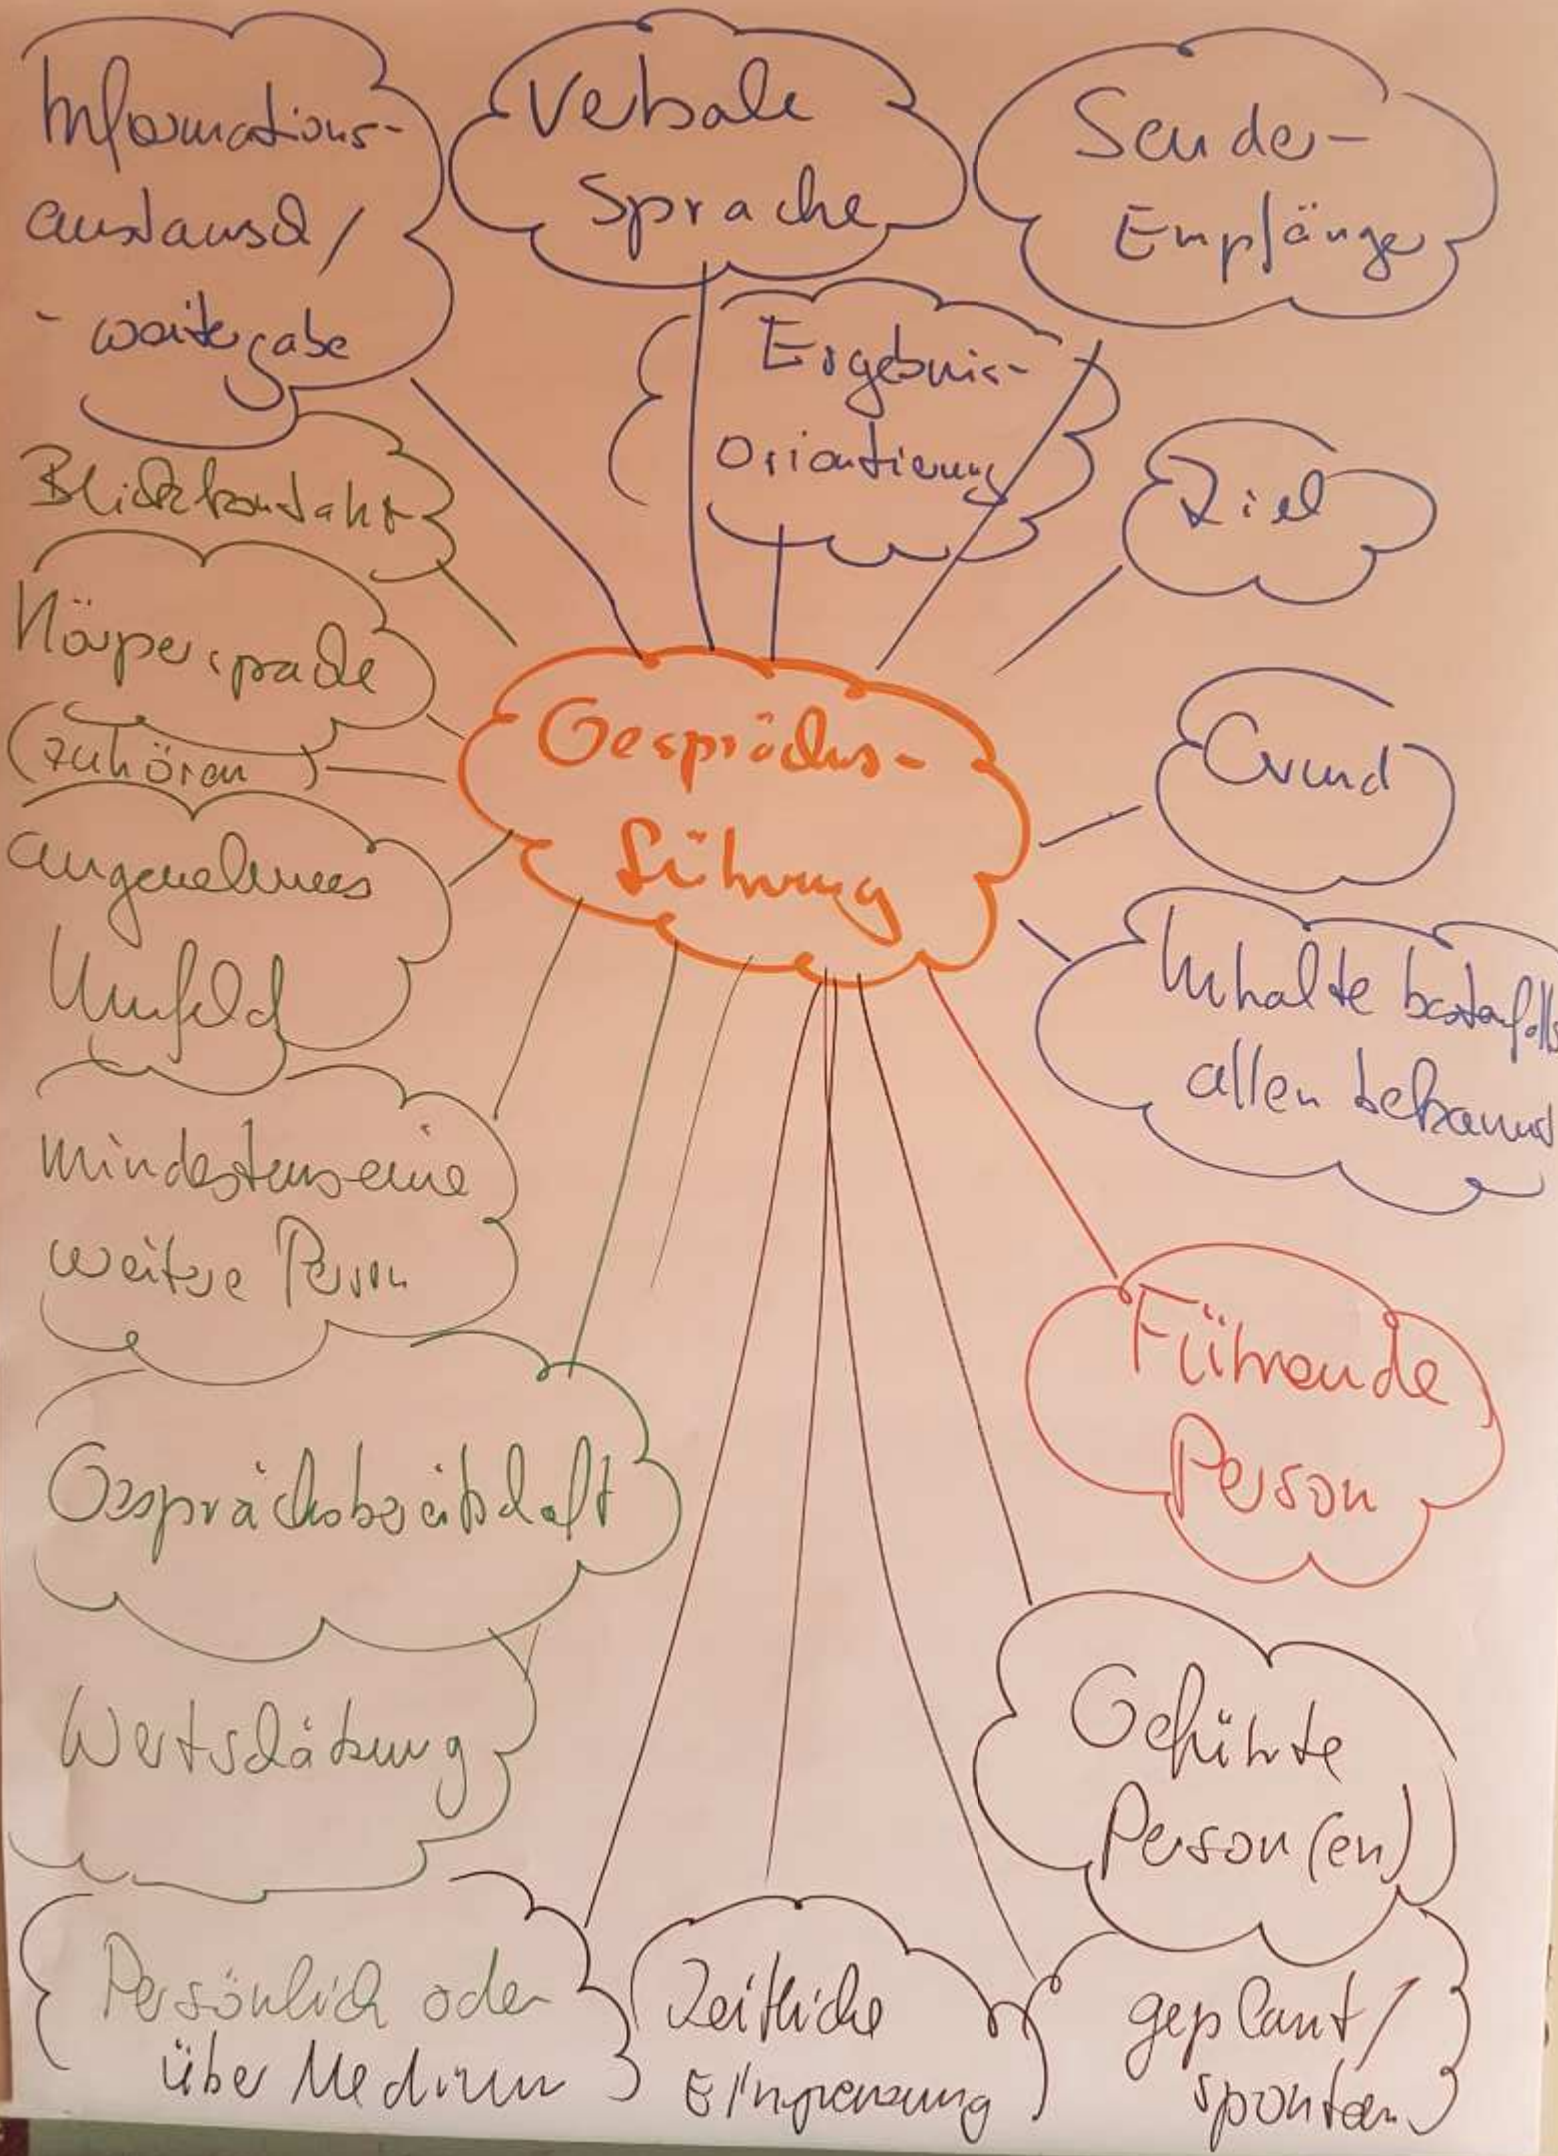 Informations-
austausch/
-weitergabe
Verbale
Sprache
Sender-
Empfänger
Ergebnis-
Orientierung
Ziel
Blickkontakt
Körpersprache
(zuhören)
Gesprächs-
führung
Grund
angenehmes
Umfeld
Inhalte bestenfalls
allen bekannt
mindestens eine
weitere Person
Führende
Person
Gesprächsbereitschaft
Wertschätzung
Geführte
Person(en)
Persönlich oder
über Medium
Zeitliche
Eingrenzung
geplant/
spontan